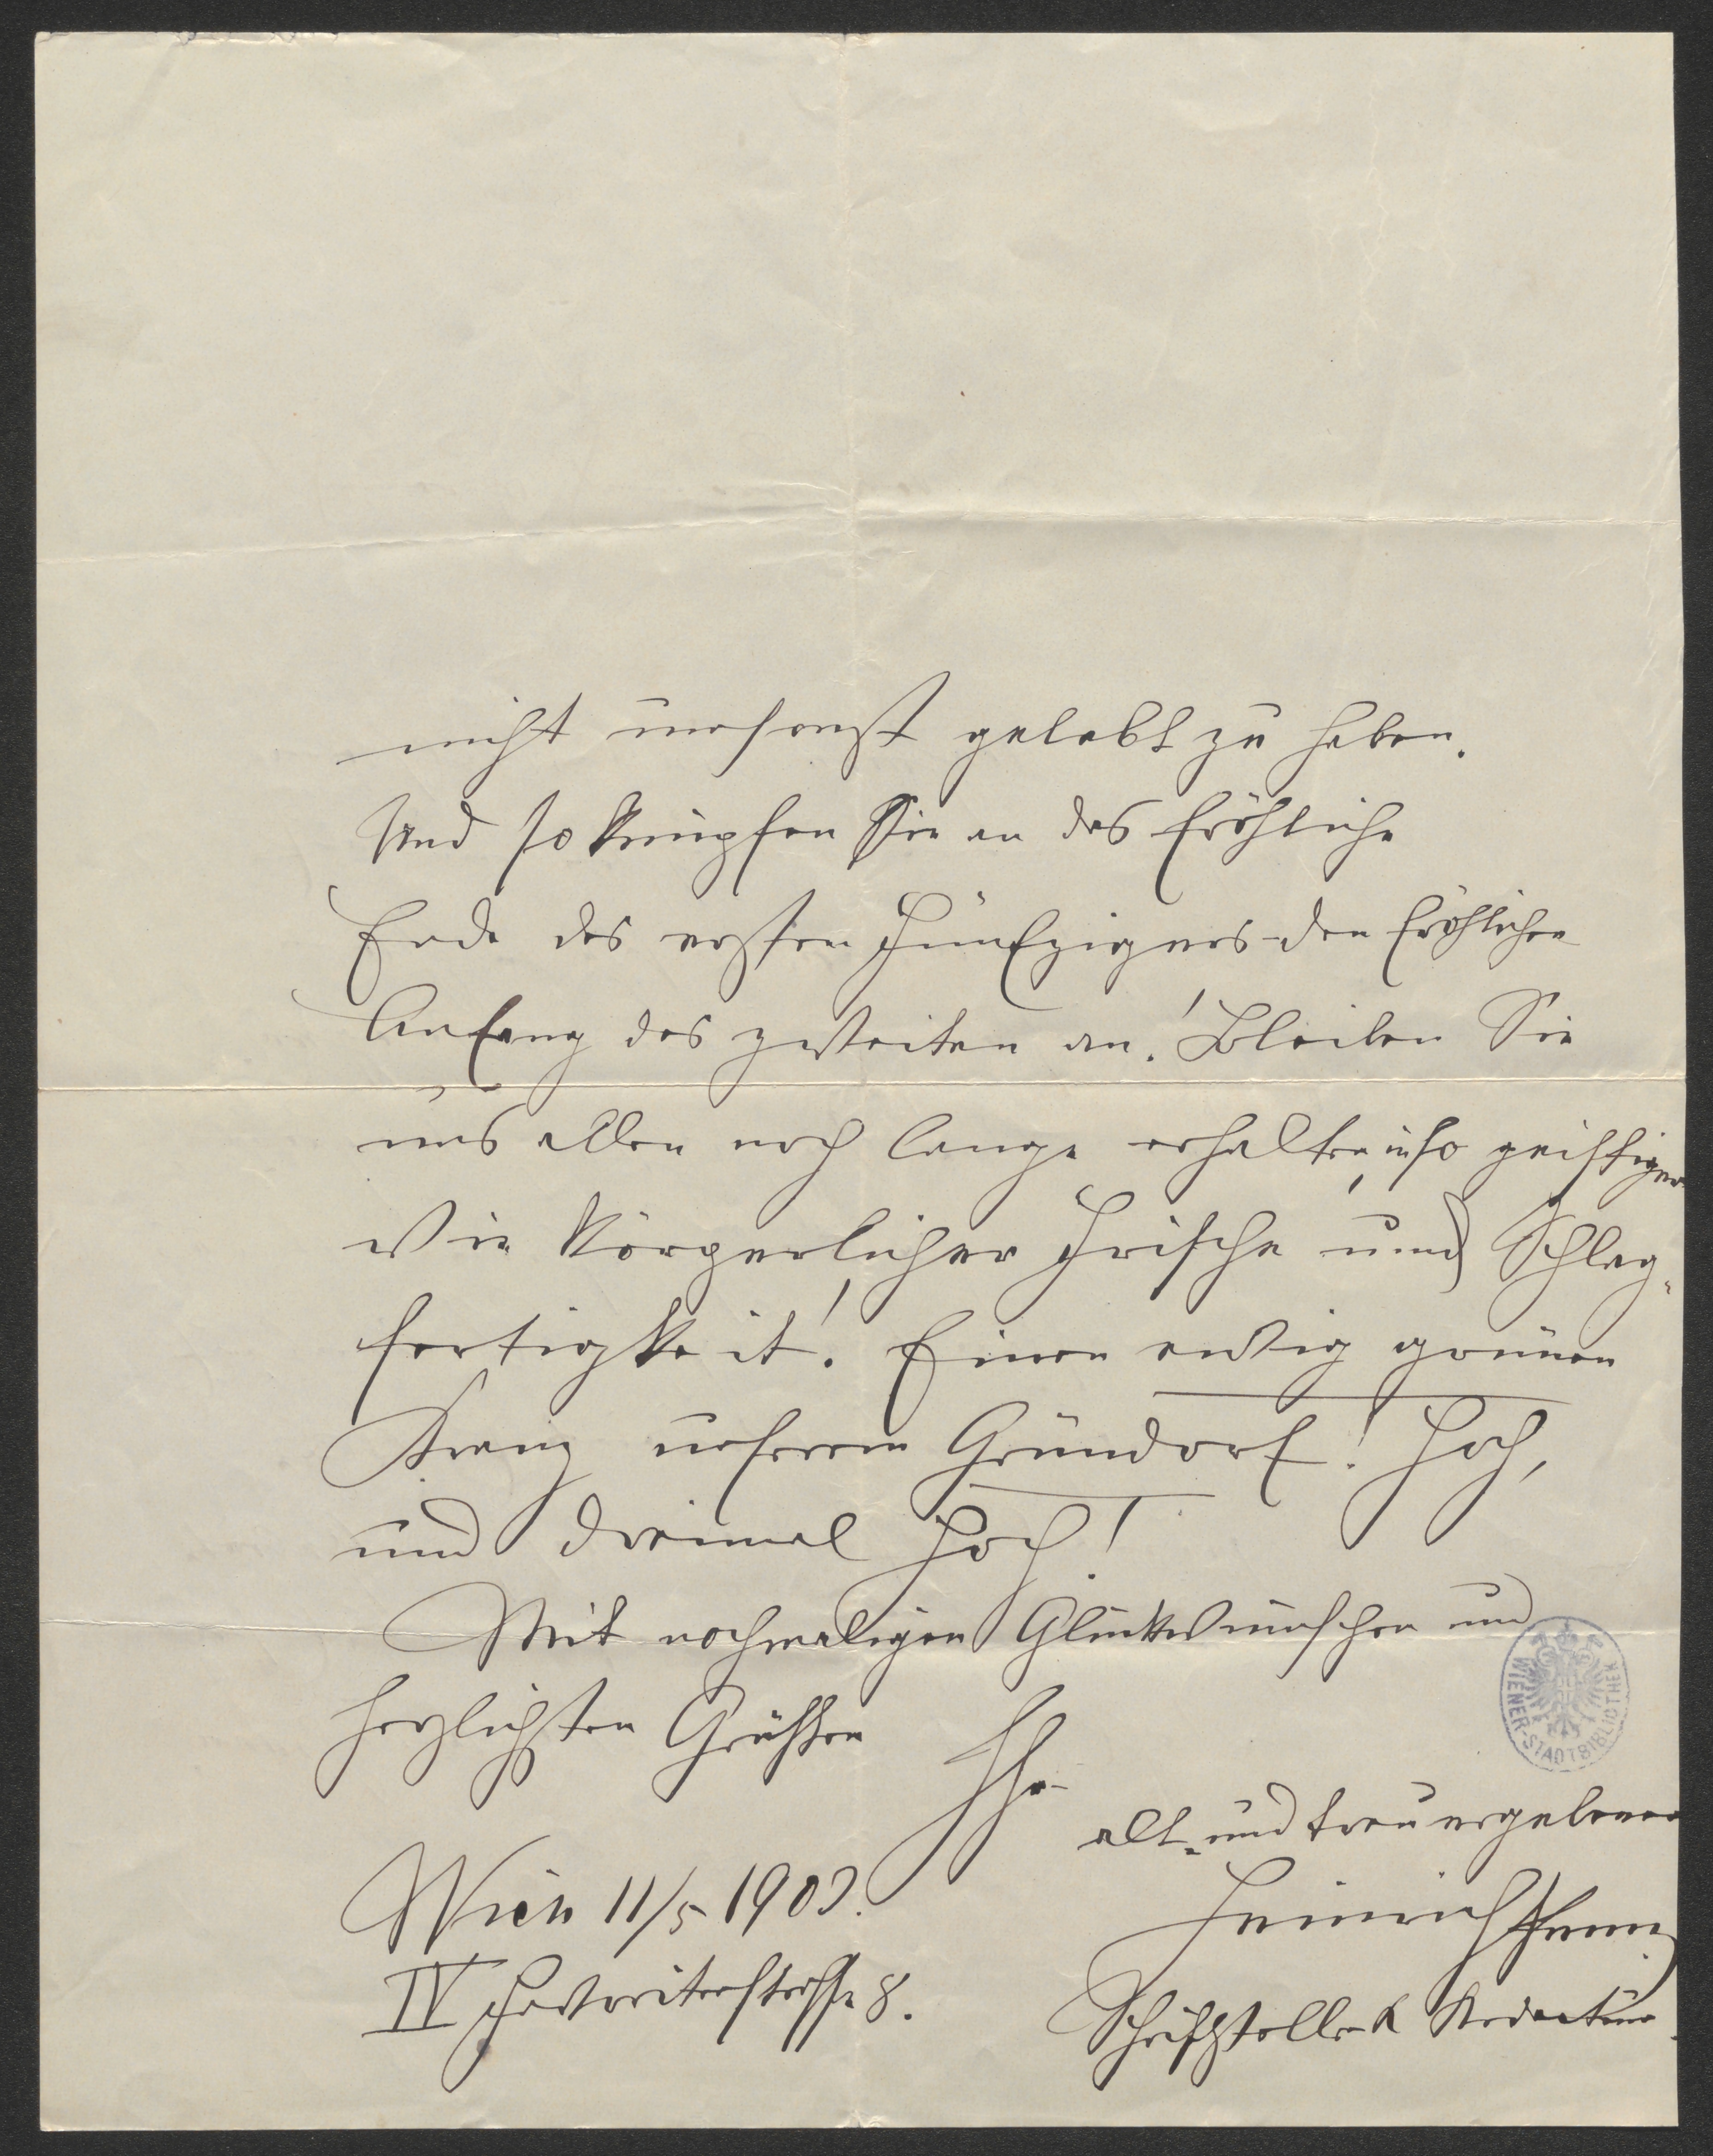 nicht umsonst gelebt zu haben.
Und so knüpfen Sie an das fröhliche
Ende des ersten Fünfzigers den fröhlichen
Anfang des zweiten an! Bleiben Sie
uns allen noch lange erhalten, in so geistiger
wie körperlicher Frische und Schlag-
fertigkeit! Einen ewig grünen
Kranz unserem Gründorf! Hoch,
und dreimal hoch!
Mit nochmaligen Glückwünschen und
herzlichsten Grüßen
Ihr
alt- und treu ergebener
Heinrich
Wien 11/5 1903.
IV Favoritenstrasse 8.
Schriftsteller & Redacteur.
WIENER-STADTBIBLIOTHEK